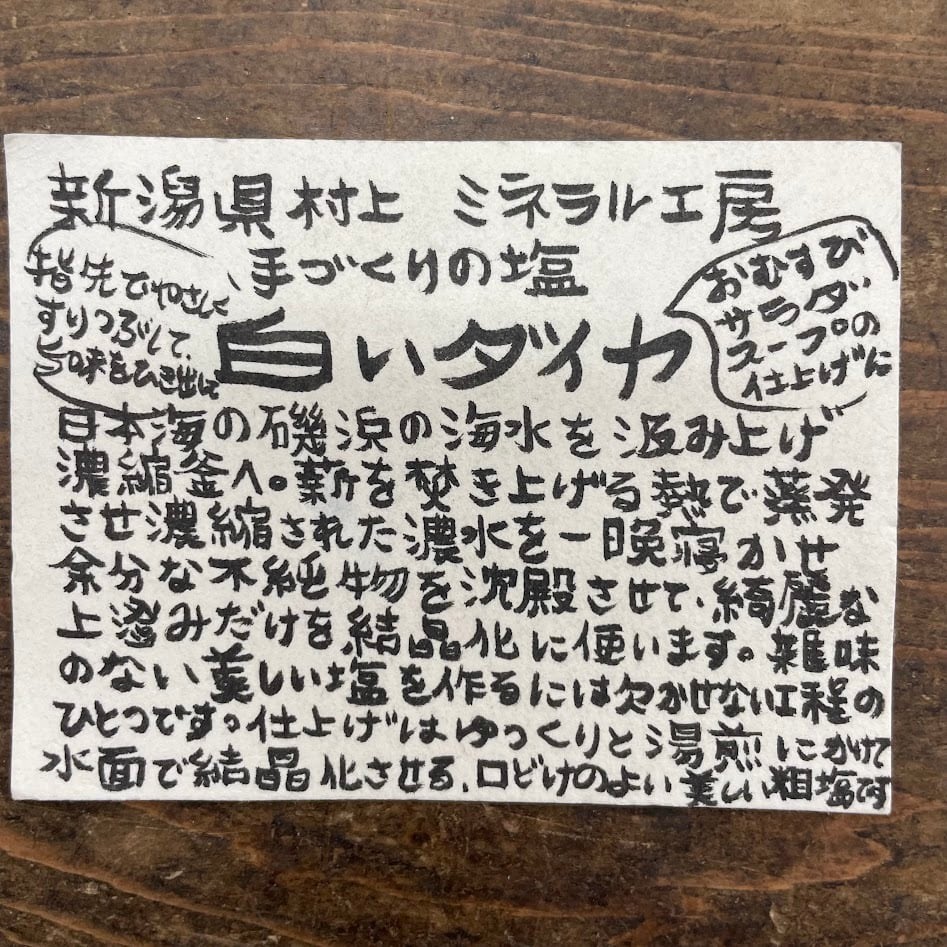 新潟県村上 ミネラル工房
手づくりの塩
指先でやさしく
すりつぶして、
旨味をひき出して
白いダイヤ
おむすび
サラダ
スープの
仕上げに
日本海の磯浜の海水を汲み上げ
濃縮釜へ。薪を焚き上げる熱で蒸発
させ濃縮された濃水を一晩寝かせ
余分な不純物を沈殿させて、綺麗な
上澄みだけを結晶化に使います。雑味
のない美しい塩を作るには欠かせない工程の
ひとつです。仕上げはゆっくりと湯煎にかけて
水面で結晶化させる、口どけのよい美しい粗塩です